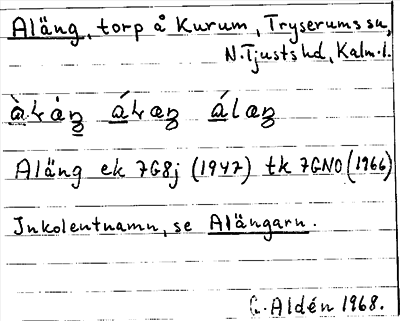 Aläng, torp å Kurum, Tryserums sn,
N. Tjusts hd, Kalm. l.
Aläng ek 7G8j (1947) tk 7GNO (1966)
Inkolentnamn, se Alängarn.
G. Aldén 1968.